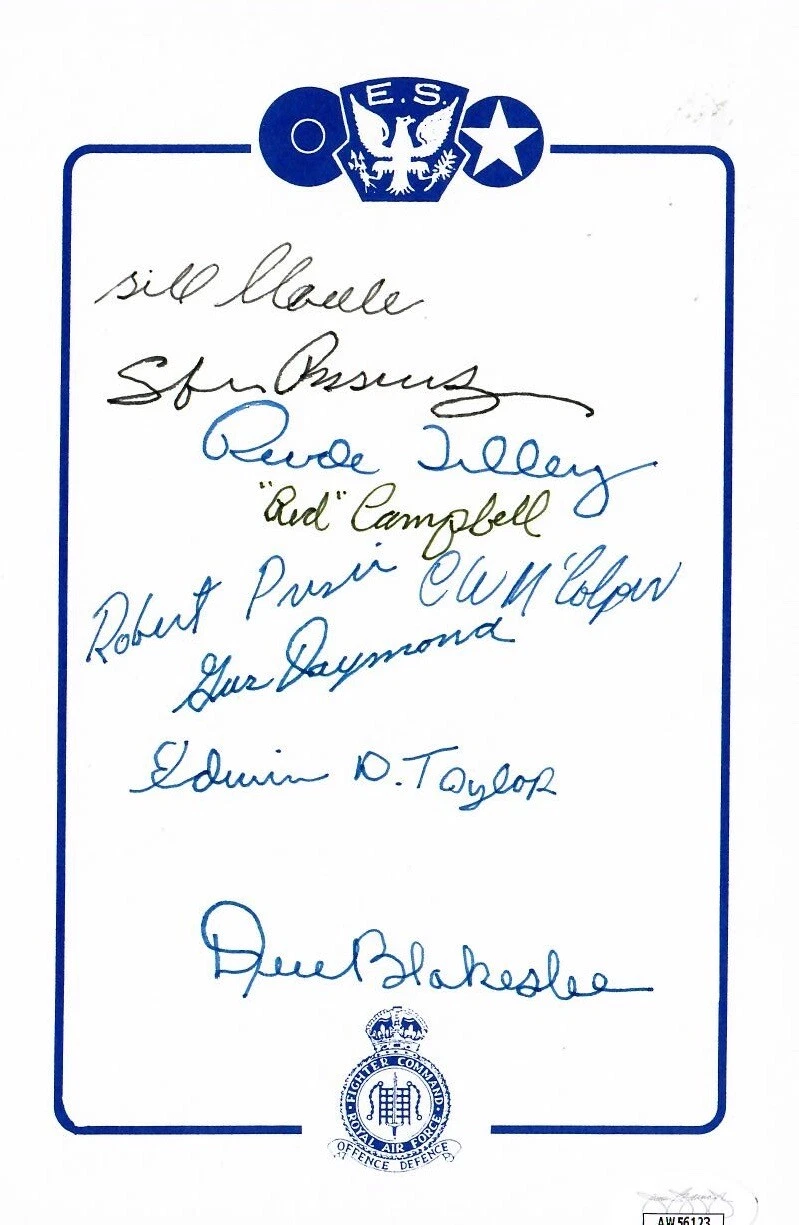 E.S.
Bill
Stan
Reade Tilley
"Red" Campbell
Robert Priser C W McColpin
Gus Daymond
Edwin D. Taylor
Don Blakeslee
FIGHTER COMMAND
ROYAL AIR FORCE
OFFENCE DEFENCE
AW56123